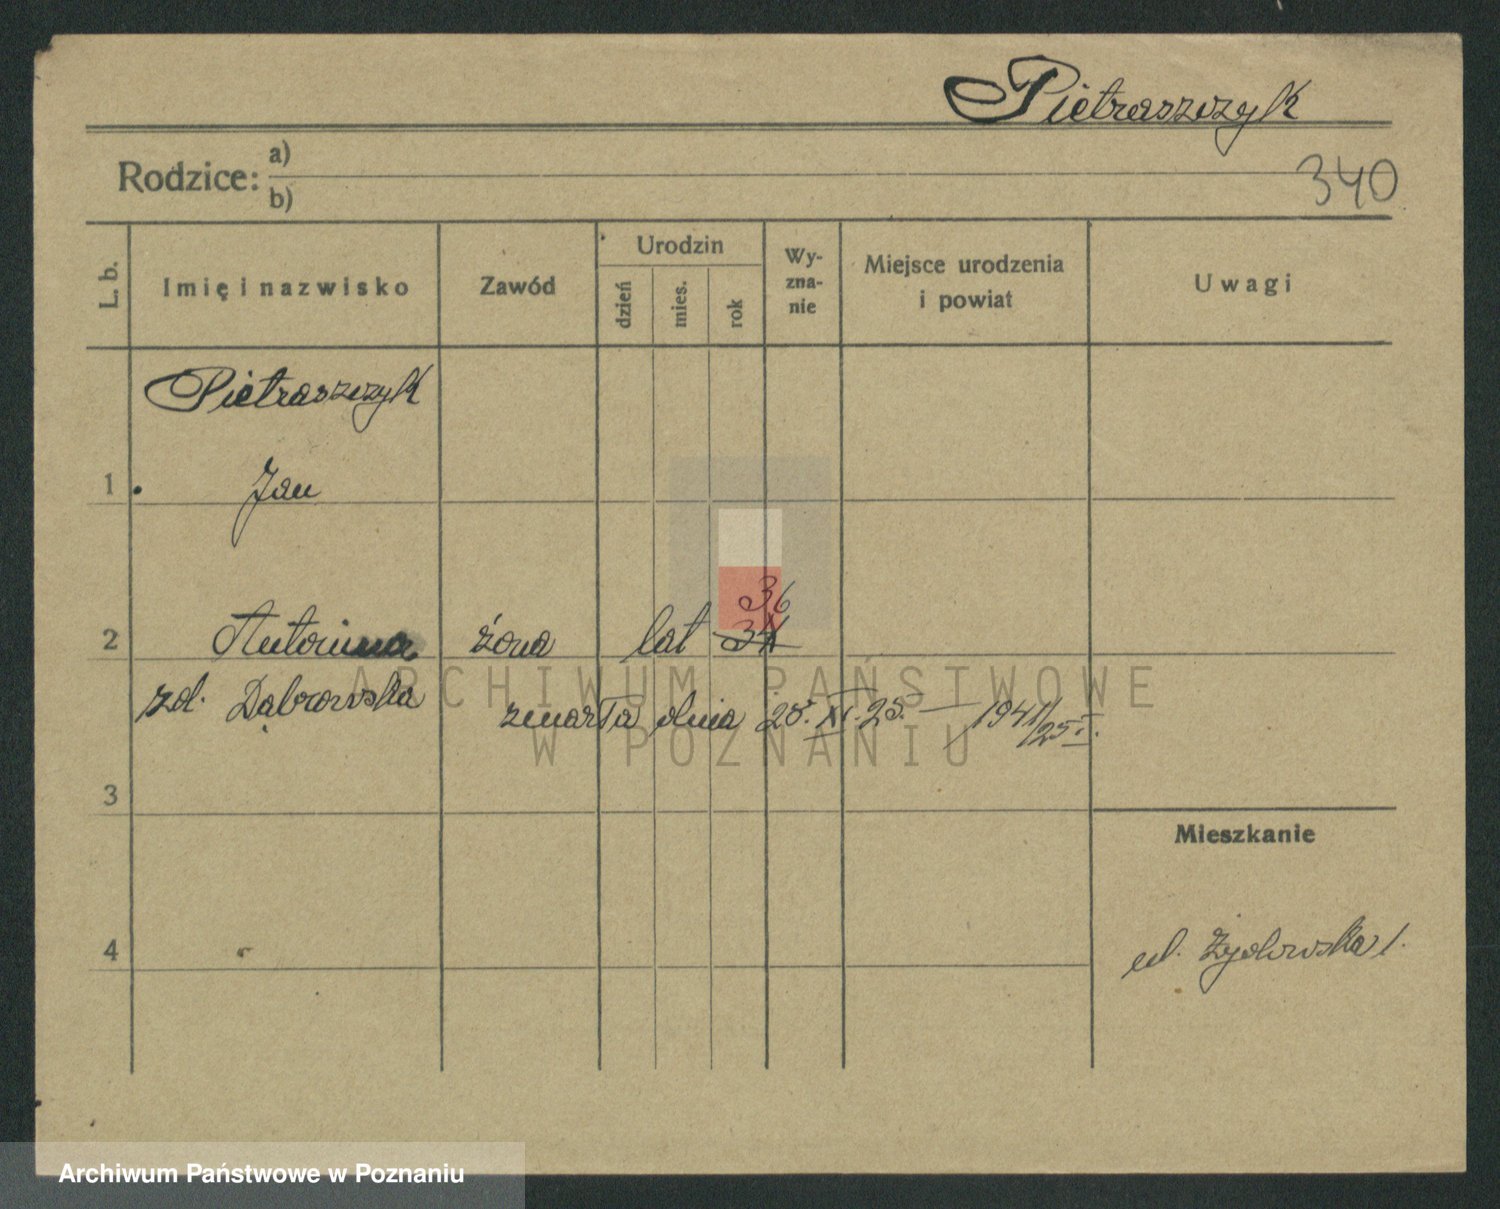 Pietraszczyk
Rodzice: a)
b)
340
L. b.
Imię i nazwisko
Zawód
Urodzin
dzień
mies.
rok
Wy-
zna-
nie
Miejsce urodzenia
i powiat
Uwagi
Pietraszczyk
1 Jan
36
2 Antonina żona lat 34
zd. Dąbrowska
zmarła dnia 28. XI. 25. 1941/
3
Mieszkanie
4
ul. Żydowska 1.
ARCHIWUM PAŃSTWOWE
W POZNANIU
Archiwum Państwowe w Poznaniu